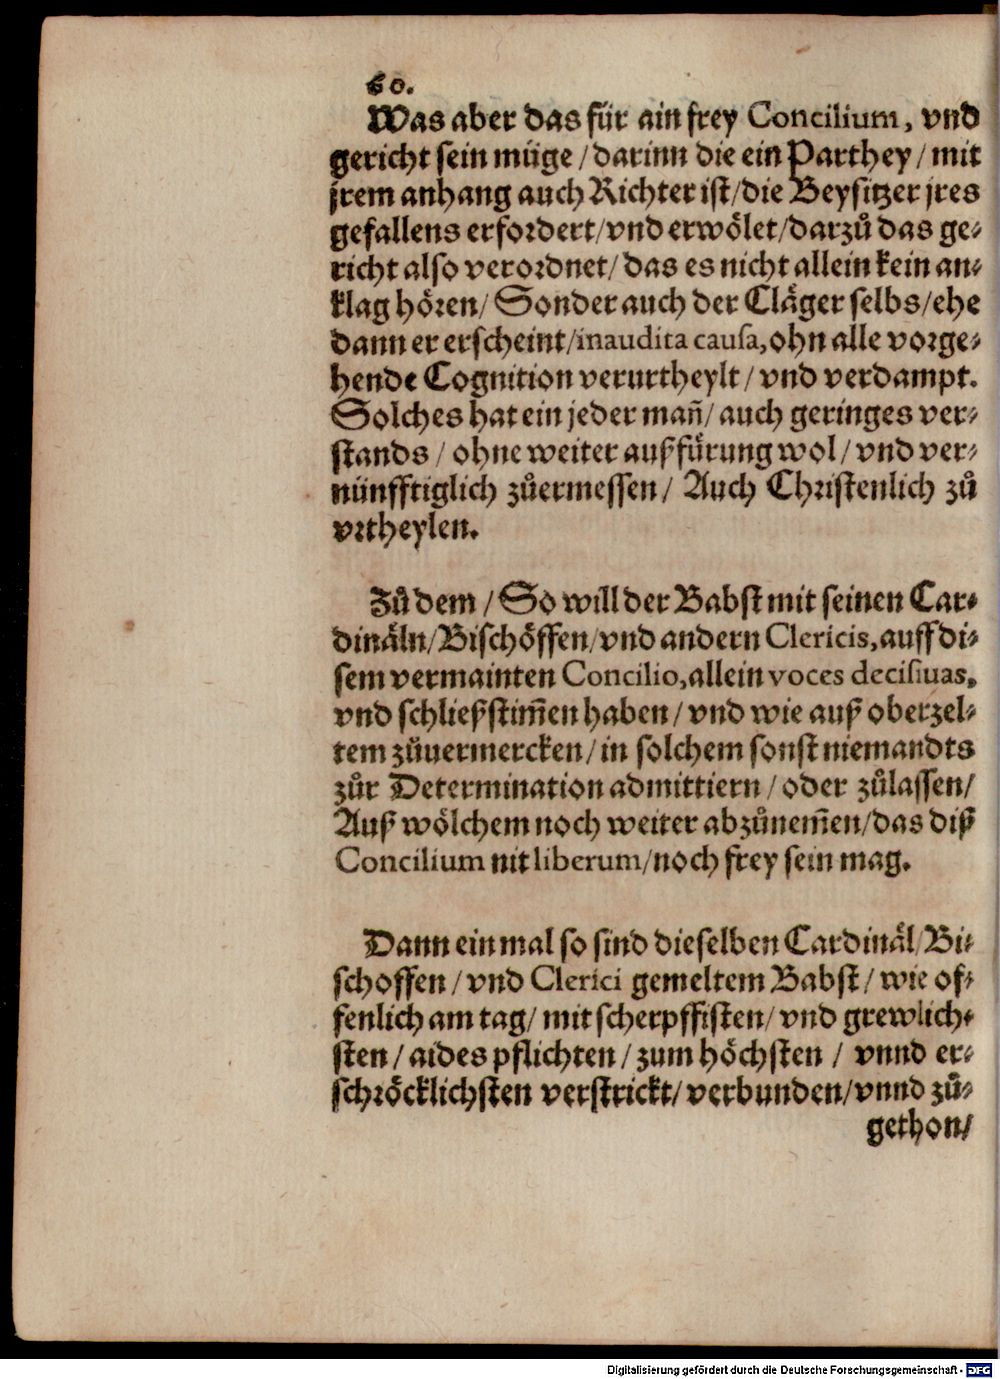 60.
Was aber das für ain frey Concilium, vnd
gericht sein müge / darinn die ein Parthey / mit
jrem anhang auch Richter ist / die Beysitzer jres
gefallens erfordert / vnd erwölet / darzů das ge⸗
richt also verordnet / das es nicht allein kein an⸗
klag hören / Sonder auch der Cläger selbs / ehe
dann er erscheint / inaudita causa, ohn alle vorge⸗
hende Cognition verurtheylt / vnd verdampt.
Solches hat ein jeder mañ / auch geringes ver⸗
stands / ohne weiter außfürung wol / vnd ver⸗
nünfftiglich zůermessen / Auch Christenlich zů
vrtheylen.
Zů dem / So will der Babst mit seinen Car⸗
dinäln / Bischöffen / vnd andern Clericis, auff di⸗
sem vermainten Concilio, allein voces decisiuas,
vnd schließstim̃en haben / vnd wie auß oberzel⸗
tem zůuermercken / in solchem sonst niemandts
zůr Determination admittiern / oder zůlassen /
Auß wölchem noch weiter abzůnem̃en / das diß
Concilium nit liberum / noch frey sein mag.
Dann ein mal so sind dieselben Cardinäl / Bi⸗
schoffen / vnd Clerici gemeltem Babst / wie of⸗
fenlich am tag / mit scherpffisten / vnd grewlich⸗
sten / aides pflichten / zum höchsten / vnnd er⸗
schröcklichsten verstrickt / verbunden / vnnd zů⸗
gethon /
Digitalisierung gefördert durch die Deutsche Forschungsgemeinschaft - DFG